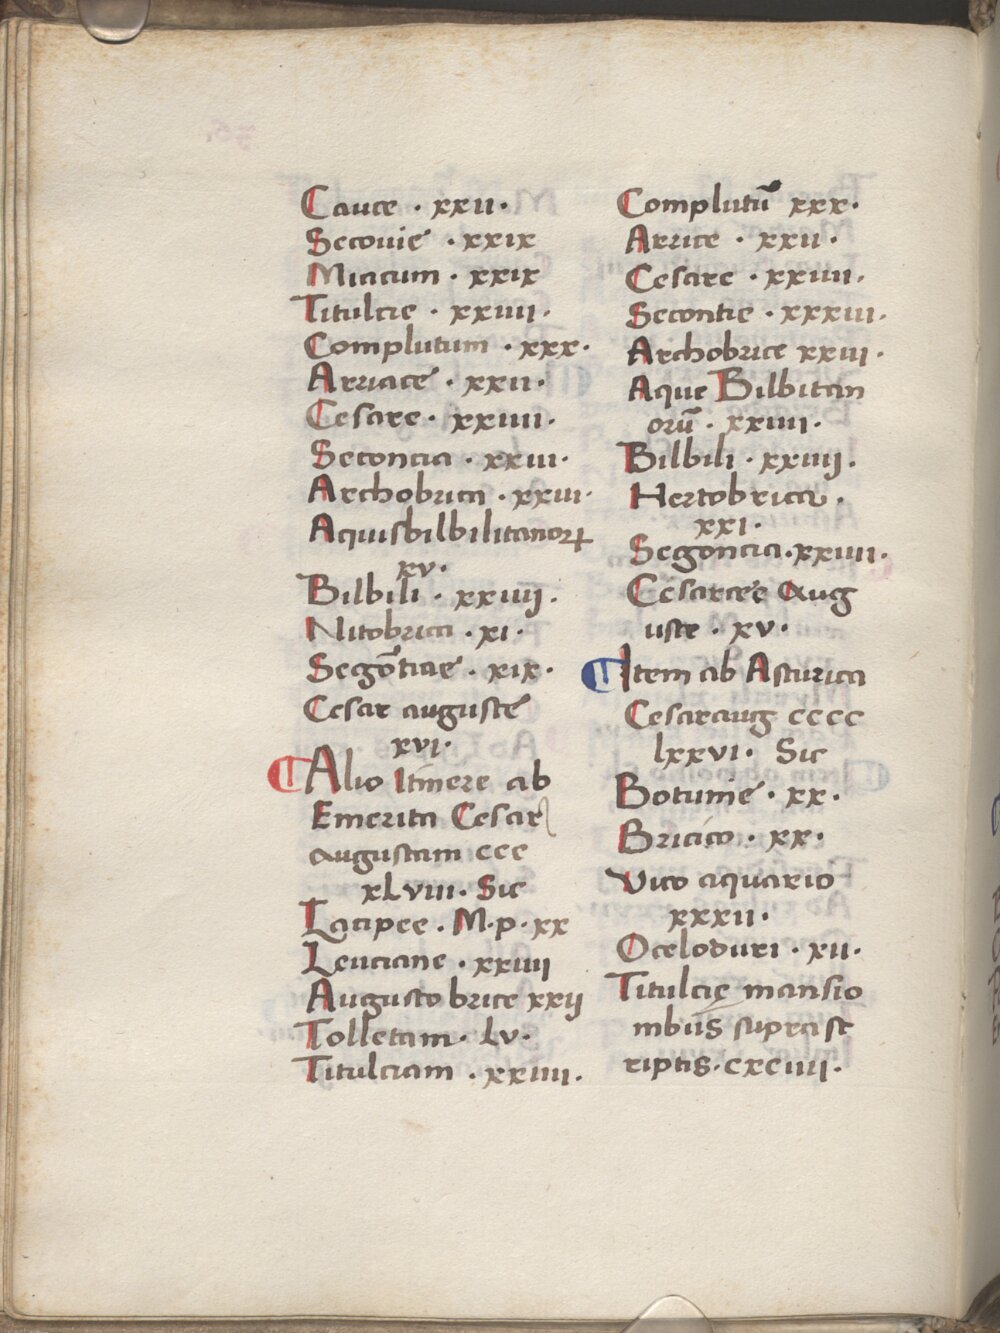 Cauce · xxii·
Secouie · xxix
Miacum · xxix
Titulcie · xxiiii·
Complutum · xxx·
Arriace · xxii·
Cesare · xxiiii·
Seconcia · xxiii·
Archobrica · xxiii·
Aquisbilbilitanorꝝ
xv·
Bilbili · xxiiij·
Nitobrica · xi·
Segōtiae · xix·
Cesar auguste
xvi·
Alio Itinere ab
Emerita Cesar
augustam ccc
xLviii· Sic
Lacipee · M·p· xx
Leuciane · xxiiij
Augusto brice xxij
Tolletam · Lv·
Titulciam · xxiiii·
Complutū xxx·
Arrice · xxii·
Cesare · xxiiii·
Secontie · xxxiii·
Archobrice xxiii·
Aque Bilbitan
orū · xxiiii·
Bilbili · xxiiij·
Hertobrica ·
xxi·
Segoncia·xxiiii·
Cesaree Aug
uste · xv·
Item ab Asturica
Cesaraug cccc
lxxvi· Sic
Botunie · xx·
Bricico · xx·
Vico aquario
xxxii·
Oceloduri · xii·
Titulcie mansio
nibus suprasc
riptis·cxciiii·